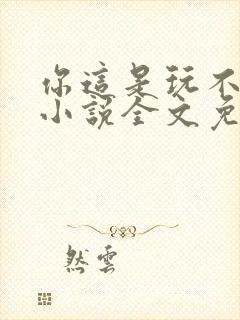 你這是玩不
小說全文免
然雲